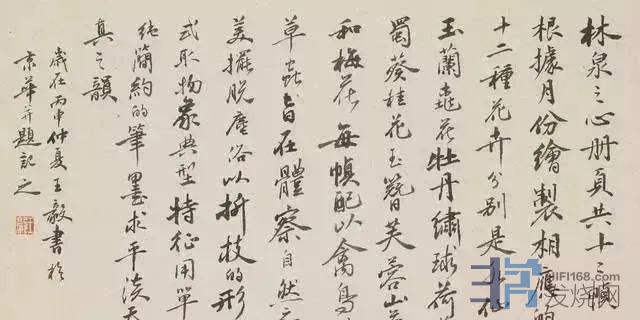 林泉之心册頁共十二幀
根據月份繪製相應的
十二種花卉分別是水仙
玉蘭桃花牡丹繡球荷
蜀葵桂花玉簪芙蓉山茶
和梅花每幀配以禽鳥
草蟲皆在體察自然之
美擺脫塵俗以折枝的形
式取物象典型特征用單
純簡約的筆墨求平淡天
真之韻
歲在丙申仲夏王毅書於
京華并題記之
HIFI168.com
发烧网